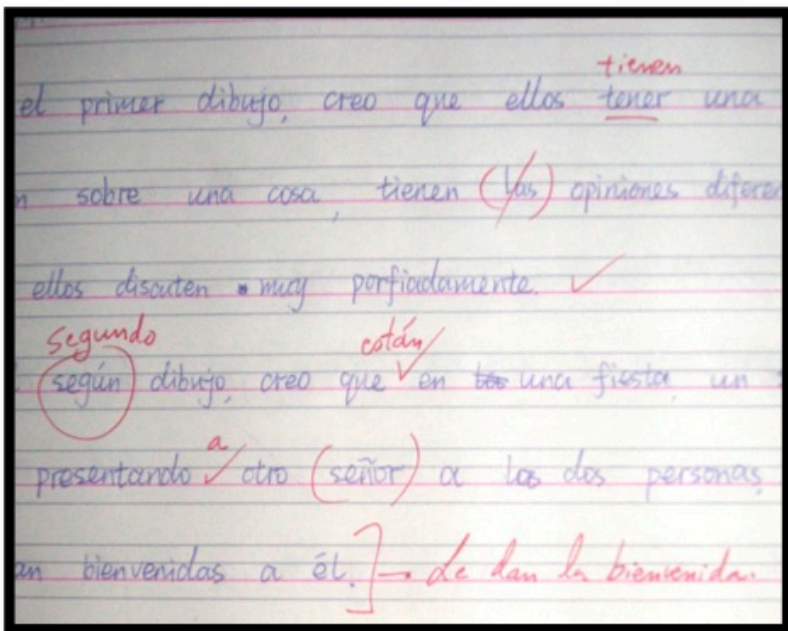 tienen
el primer dibujo, creo que ellos tener una
n sobre una cosa, tienen (las) opiniones diferen
ellos discuten muy porfiadamente.
segundo están
según dibujo, creo que en una fiesta, un
a
presentando otro (señor) a los dos personas,
an bienvenidas a él.] → Le dan la bienvenida.